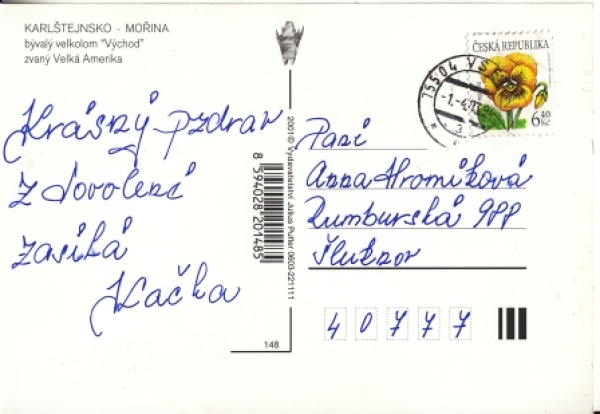 KARLŠTEJNSKO - MOŘINA
bývalý velkolom "Východ"
zvaný Velká Amerika
Krásný pozdrav
z dovolené
zasílá
Kačka
148
8 594028 201485
2001 © Vydavatelství Julius Pufler 0603-221111
75504 VSE
ČESKÁ REPUBLIKA
6,40 Kč
Paní
Anna Hromíková
Rumburská 988
Šluknov
40777